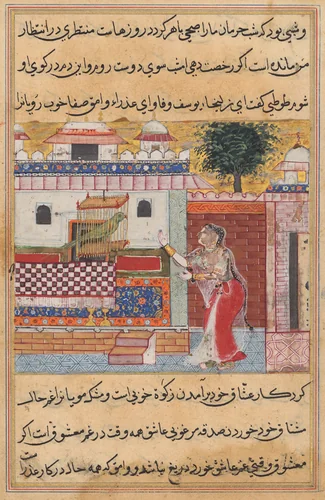 وشبی بود که شب حرمان ما را صبحی باهر کردد روزهاست منتظری در انتظار
من مانده است اگر رخصت دهی امشب سوی دوست روم و این دم در کوی او
شوم طوطی گفت ای زلیخاء یوسف وفا و ای عذراء وامق صفا خوب رویان را از
کرد کار عشاق خود برآمدن زکوة خوبی است و مشک مویان را غم حال
مشتاق خود خوردن صدقه مرغوبی عاشق همه وقت در غم معشوق است اگر
معشوق وقتی غم عاشق خورد دریغ نباشد و وامق که همه حال در کار عذراست